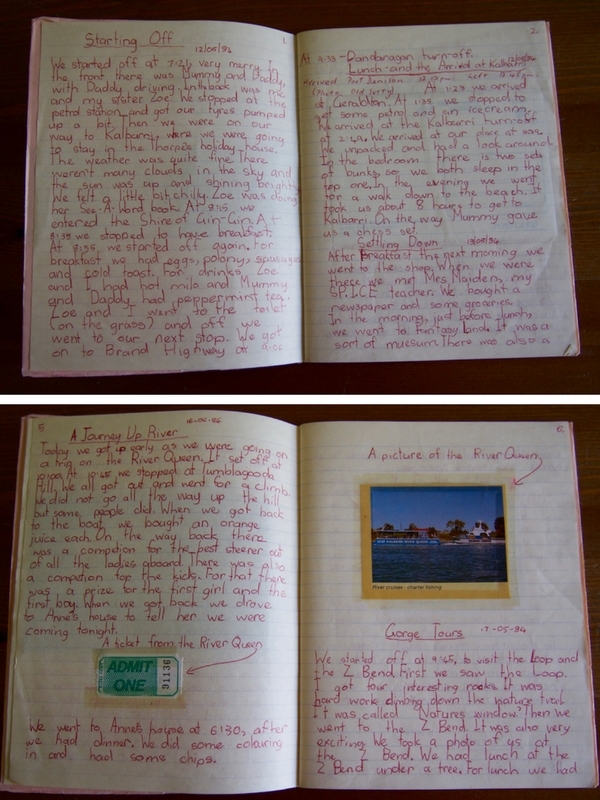 1.
Starting Off
12/05/94
We started off at 7:21, very merry. In
the front there was Mummy and Daddy,
with Daddy driving. In the back was me
and my sister Zoe. We stopped at the
petrol station and got our tyres pumped
up a bit, then we were on our
way to Kalbarri, where we were going
to stay in the Thorpe's holiday house.
The weather was quite fine. There
weren't many clouds in the sky and
the sun was up and shining brightly
We felt a little bit chilly. Zoe was doing
her See-A-Word book. At 8:15 we
entered the Shire of Gin-Gin. At
8:35 we stopped to have breakfast.
At 8:55, we started off again. For
breakfast we had eggs, polony, sausages
and cold toast. For drinks, Zoe
and I had hot milo and Mummy
and Daddy had peppermint tea.
Zoe and I went to the toilet
(on the grass) and off we
went to our next stop. We got
on to Brand Highway at 9.06
2.
At 9:35 - Dandaragan turn-off.
Lunch and the Arrival at Kalbarri
12/05/94
Arrived Port Denison left
At 1:23 we arrived
at Geraldton. At 1:35 we stopped to
get some petrol and an icecream.
We arrived at the Kalbarri turn-off
at 2:42. We arrived at our place at
We unpacked and had a look around.
In the bedroom there is two sets
of bunks, so we both sleep in the
top one. In the evening we went
for a walk down to the beach. It
took us about 8 hours to get to
Kalbarri. On the way Mummy gave
us a chess set.
Settling Down
13/05/94
After Breakfast the next morning we
went to the shop. When we were
there we met Mrs Maiden, my
S.P.I.C.E teacher. We bought a
newspaper and some groceries.
In the morning, just before lunch,
we went to Fantasy Land. It was a
sort of muesum. There was also a
5
A Journey Up River
16-05-94
Today we got up early as we were going on
a trip on the River Queen. It set off at
10:00. At 10:45 we stopped at Tumblagooda
Hill. We all got out and went for a climb.
We did not go all the way up the hill
but some people did. When we got back
to the boat we bought an orange
juice each. On the way back there
was a competion for the best steerer out
of all the ladies aboard. There was also
a competion for the kids. For that there
was a prize for the first girl and the
first boy. When we got back we drove
to Anne's house to tell her we were
coming tonight.
A ticket from the River Queen
ADMIT
ONE
91136
We went to Anne's house at 6:30, after
we had dinner. We did some colouring
in and had some chips.
6.
A picture of the River Queen
River cruises - charter fishing
Gorge Tours
17-05-94
We started off at 9:45, to visit the Loop and
the Z Bend. First we saw the Loop.
I got four interesting rocks. It was
hard work climbing down the nature trail
It was called Natures window. Then we
went to the Z Bend. It was also very
exciting. We took a photo of us at
the Z Bend. We had lunch at the
Z Bend under a tree. For lunch we had